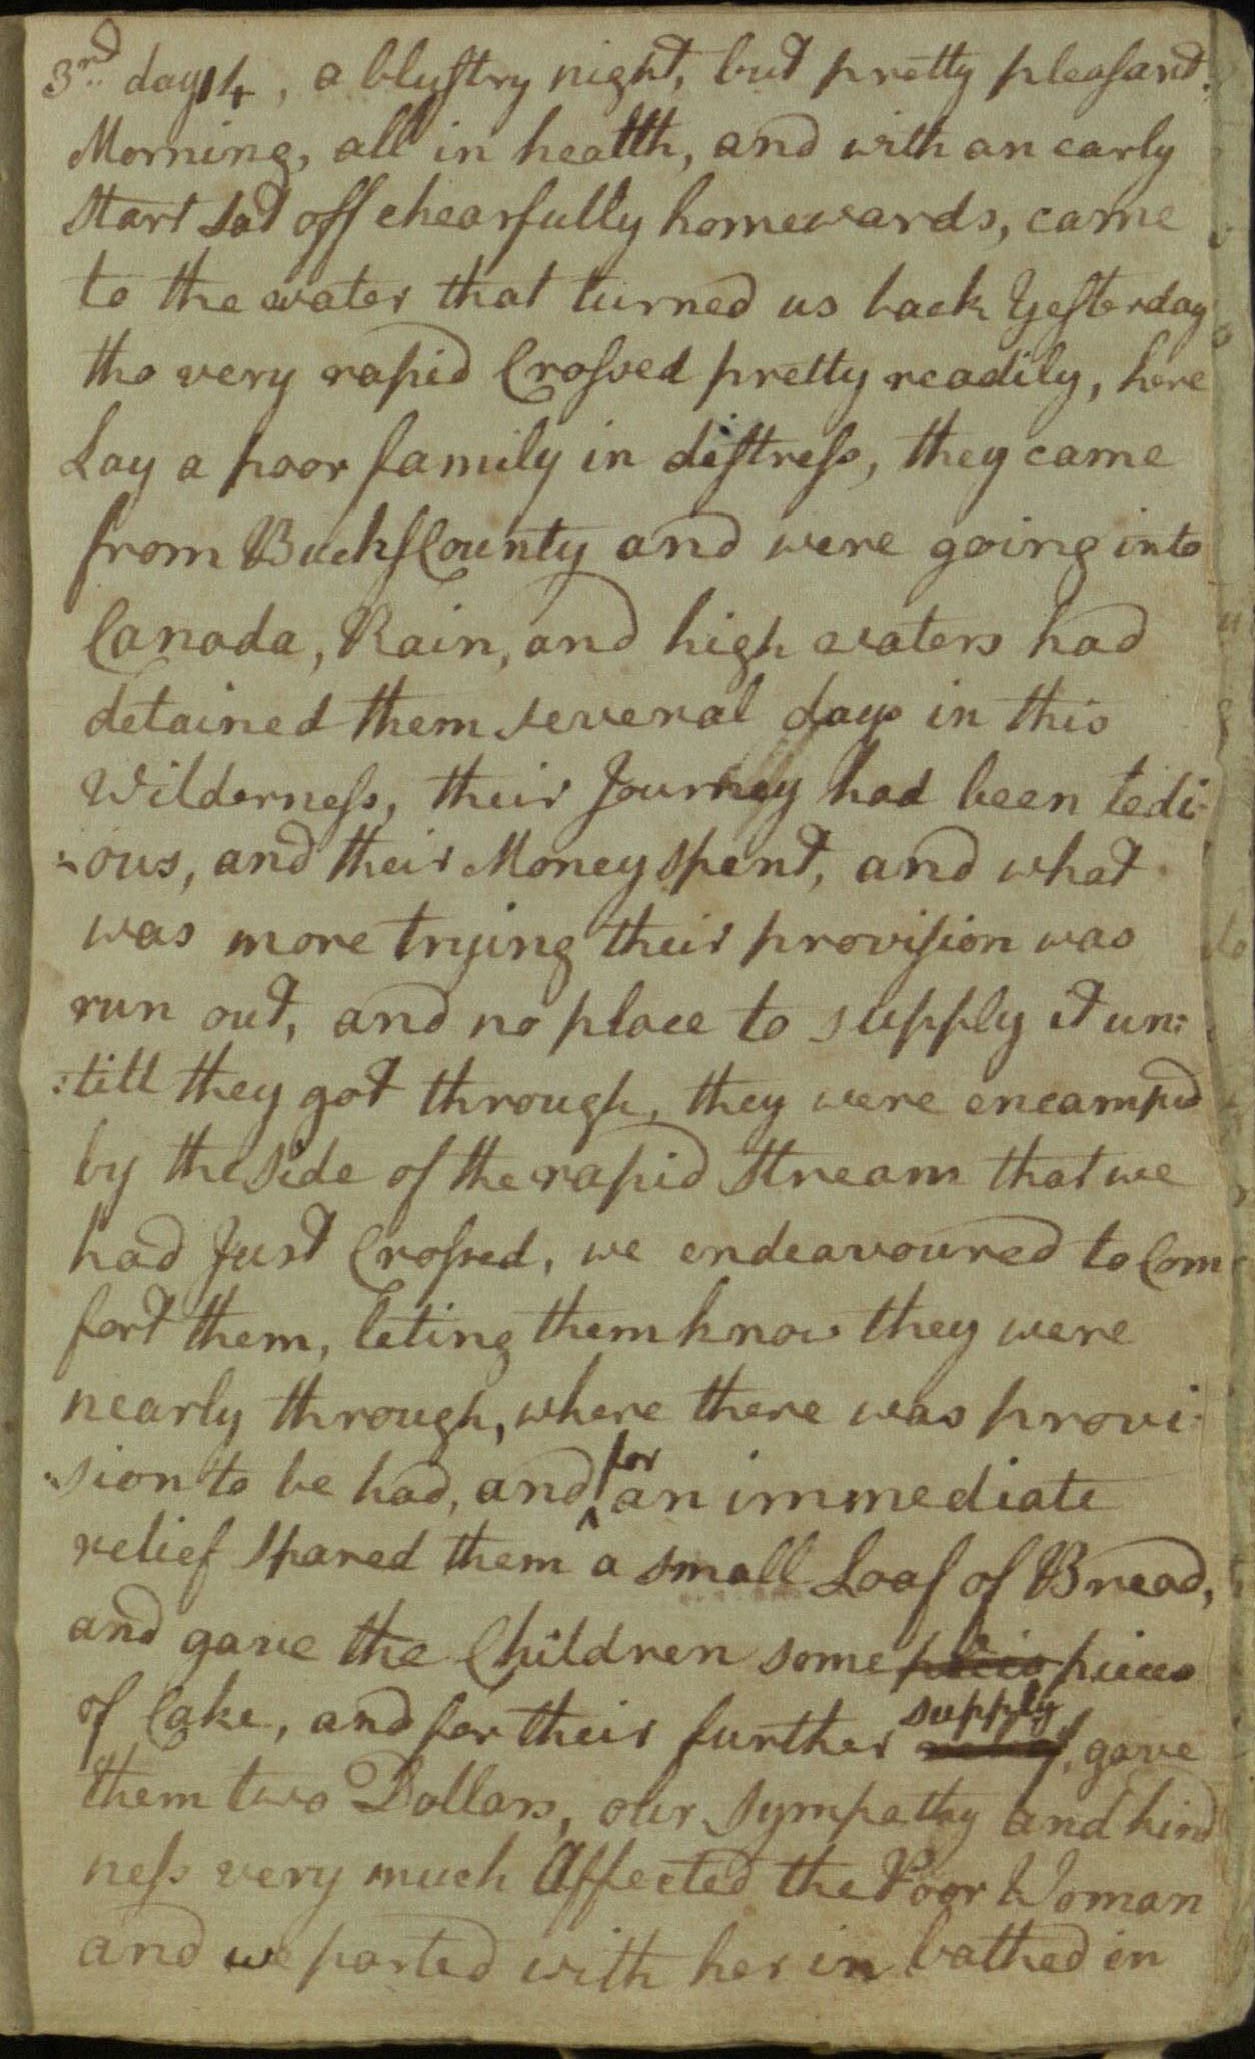 3rd day 14, a blustry night, but pretty pleasant
Morning, all in health, and with an early
start sat off chearfully homewards, came
to the water that turned us back Yesterday
tho very rapid Crossed pretty readily, here
Lay a poor family in distress, they came
from Bucks County and were going into
Canada, Rain, and high waters had
detained them several days in this
Wilderness, their Journey had been tedi-
-ous, and their Money spent, and what
was more trying their provision was
run out, and no place to supply it un:
:till they got through, they were encamped
by the side of the rapid Stream that we
had Just Crossed, we endeavoured to Com
fort them, leting them know they were
nearly through, where there was provi:
:sion to be had, and ^for an immediate
relief spared them a small Loaf of Bread,
and gave the Children some pieces
of Cake, and for their further supply, gave
them two Dollars, our Sympathy and kind
ness very much Affected the Poor Woman
and we parted with her in bathed in